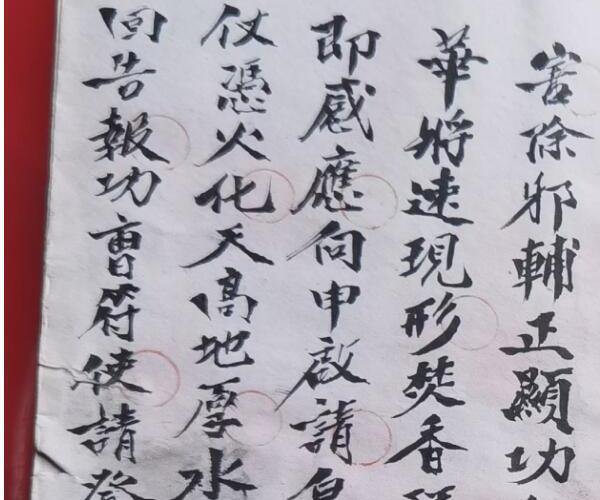 害除邪輔正顯功
華將速現形焚香
即感應向申啟請自
仗憑火化天高地厚水
回告報功曹符使請登